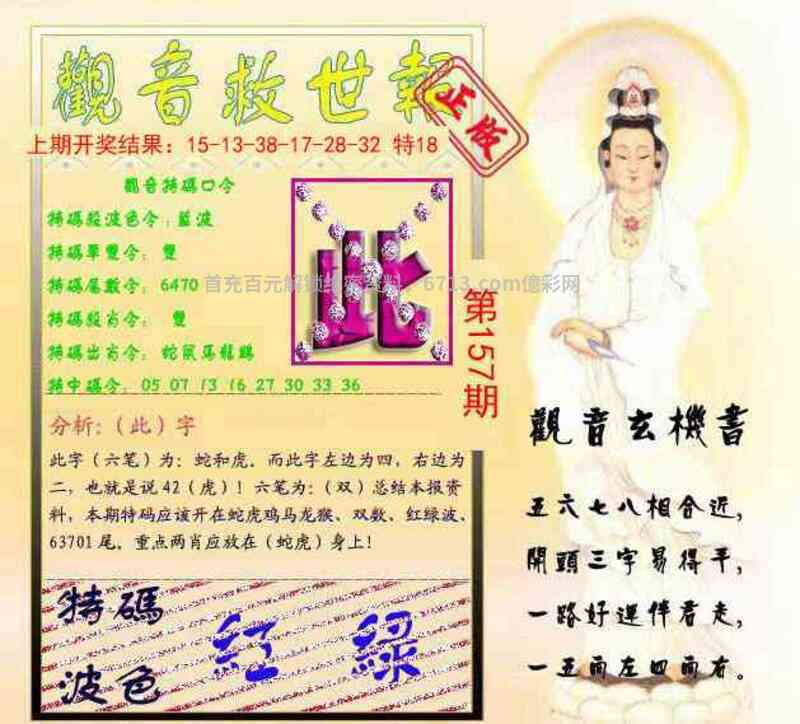 觀音救世報
正版
上期开奖结果：15-13-38-17-28-32 特18
觀音特碼口令
特碼殺波色令：藍波
特碼單雙令：雙
特碼尾數令：6470
首充百元解锁
6713.com億彩网
特碼殺肖令：雙
特碼出肖令：蛇鼠馬龍鷄
特中碼令：05 07 13 16 27 30 33 36
此
第157期
分析：（此）字
此字（六笔）为：蛇和虎。而此字左边为四，右边为
二，也就是说42（虎）！六笔为：（双）总结本报资
料，本期特码应该开在蛇虎鸡马龙猴、双数、红绿波、
63701尾。重点两肖应放在（蛇虎）身上！
特碼
波色
紅 綠
觀音玄機書
五六七八相合近，
開頭三字易得平，
一路好運伴君走，
一五而左四而右。